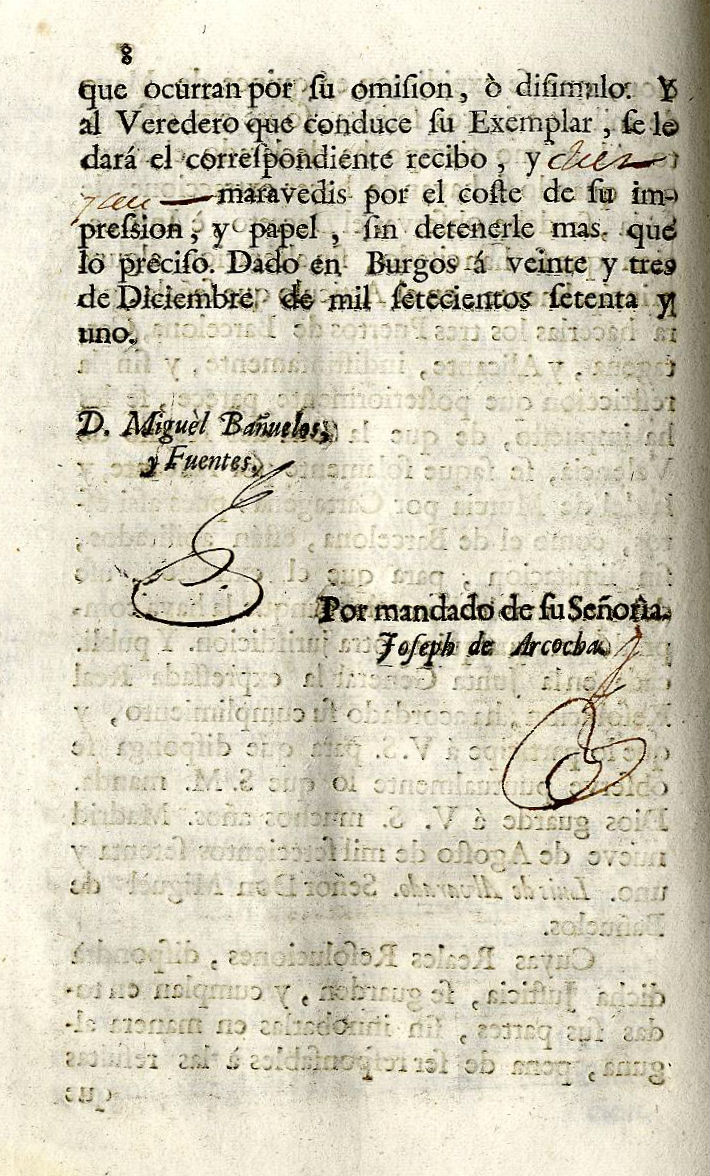 8
que ocurran por ſu omiſion, ò diſimulo. Y
al Veredero que conduce ſu Exemplar, ſe le
dará el correſpondiente recibo, y
maravedis por el coſte de ſu im-
preſsion, y papel, ſin detenerle mas que
lo preciſo. Dado en Burgos á veinte y tres
de Diciembre de mil ſetecientos ſetenta y
uno.
D. Miguèl Bañuelos,
y Fuentes.
Por mandado de ſu Señoría.
Joſeph de Arcocha.